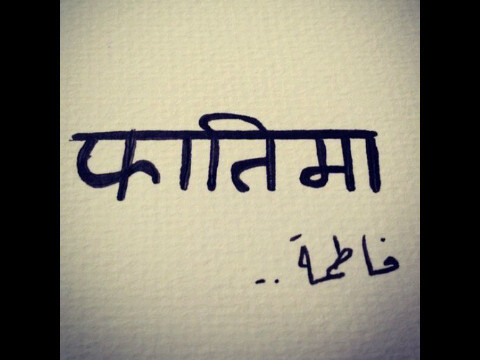 फातिमा
فاطمة..